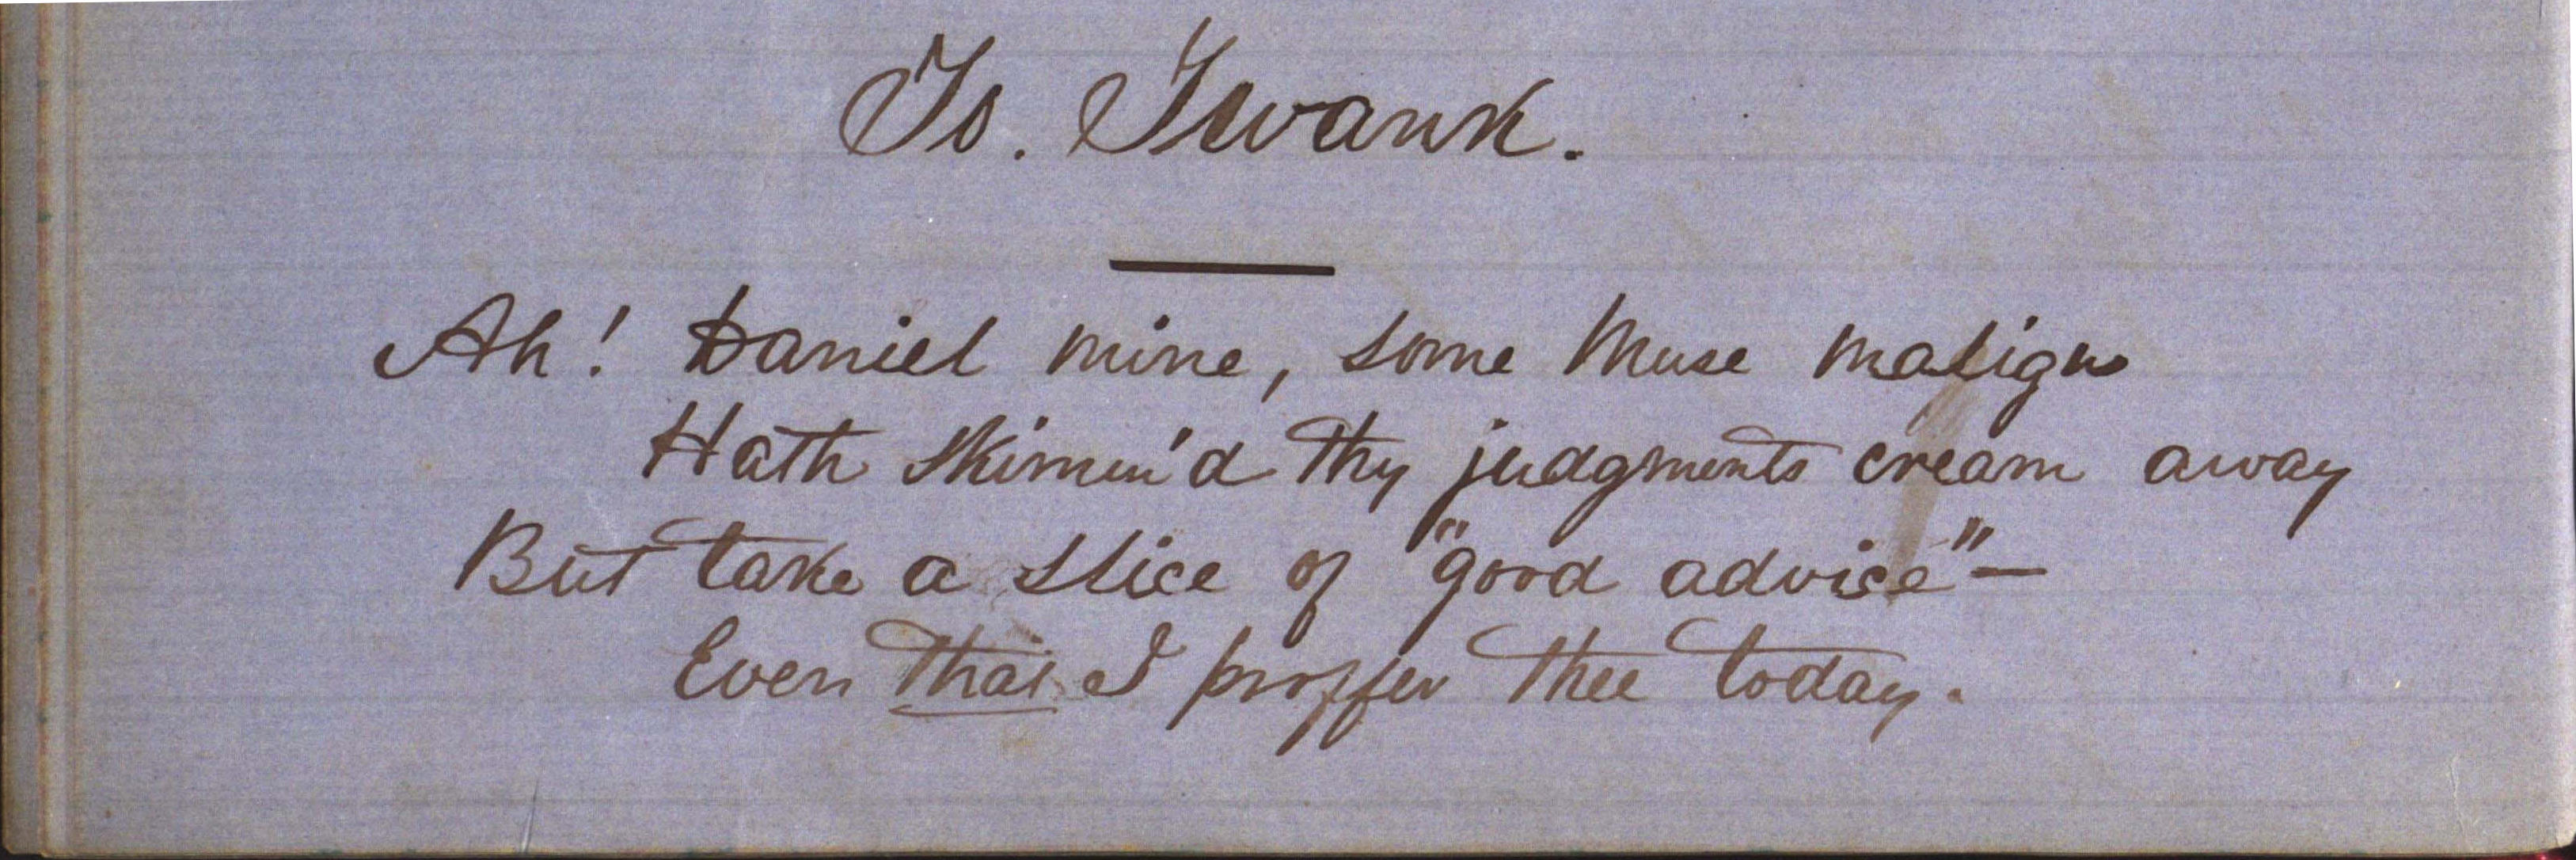 To. Twank.
Ah! Daniel mine, some Muse malign
Hath skimm'd thy judgments cream away
But take a slice of "good advise"—
Even that I proffer thee today.